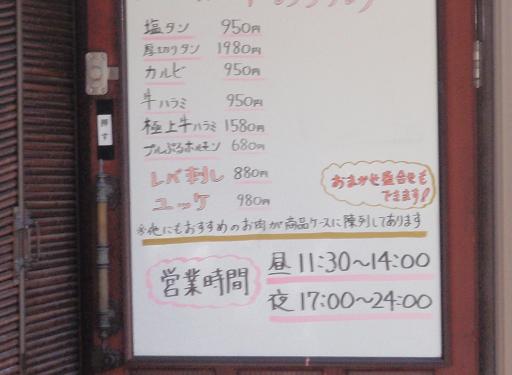 塩タン 950円
厚切りタン 1980円
カルビ 950円
牛ハラミ 950円
極上牛ハラミ 1580円
プルぷるホルモン 680円
レバ刺し 880円
ユッケ 980円
おまかせ盛合せも
できます!
※他にもおすすめのお肉が商品ケースに陳列してあります
営業時間
昼 11:30~14:00
夜 17:00~24:00
押す